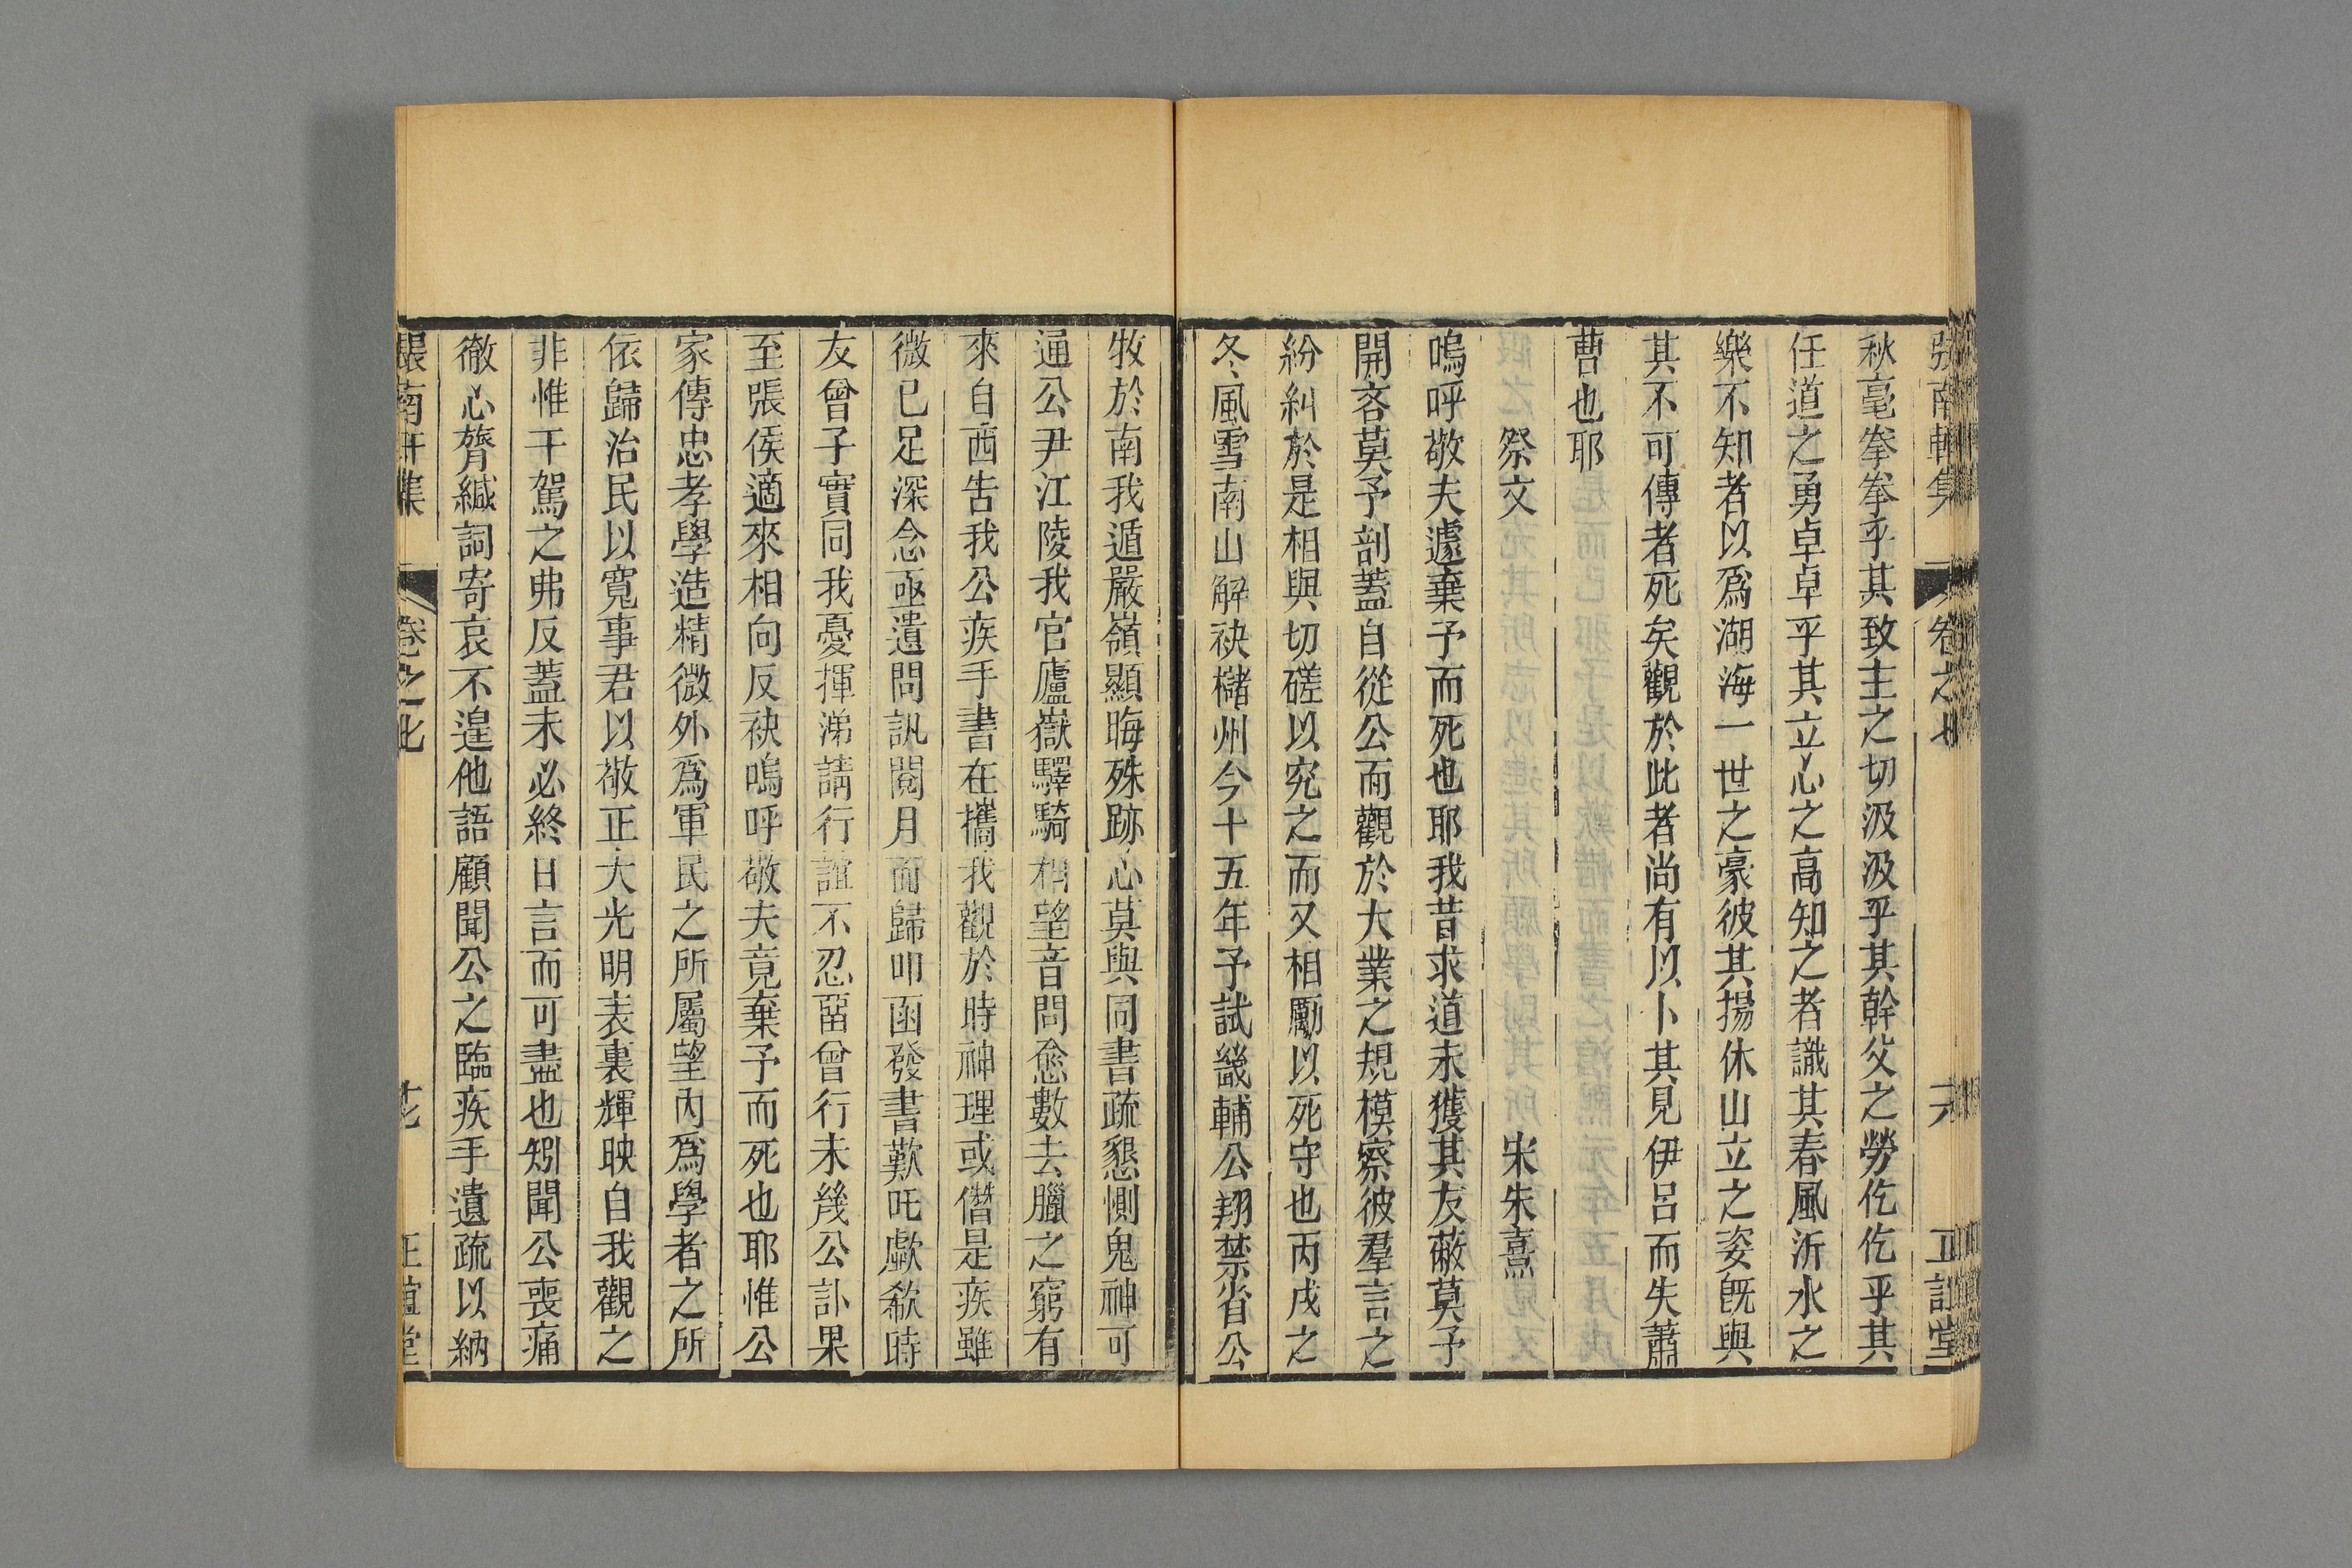 張南軒集 卷之七 六 正誼堂
秋毫拳拳乎其致主之切汲汲乎其幹父之勞仡仡乎其
任道之勇卓卓乎其立心之高知之者識其春風沂水之
樂不知者以爲湖海一世之豪彼其揚休山立之姿旣與
其不可傳者死矣觀於此者尚有以卜其見伊呂而失蕭
曹也耶
祭文 宋朱熹
嗚呼敬夫遽棄予而死也耶我昔求道未獲其友蔽莫予
開吝莫予剖蓋自從公而觀於大業之規模察彼羣言之
紛糾於是相與切磋以究之而又相勵以死守也丙戌之
冬風雪南山解袂櫧州今十五年予試畿輔公翔禁省公
牧於南我遁嚴嶺顯晦殊跡心莫與同書疏懇惻鬼神可
通公尹江陵我官廬嶽驛騎相望音問愈數去臘之窮有
來自西告我公疾手書在攜我觀於時神理或僭是疾雖
微已足深念亟遣問訊閱月而歸叩函發書歎吒歔欷時
友曾子實同我憂揮涕請行誼不忍留曾行未幾公訃果
至張侯適來相向反袂嗚呼敬夫竟棄予而死也耶惟公
家傳忠孝學造精微外爲軍民之所屬望內爲學者之所
依歸治民以寬事君以敬正大光明表裏輝映自我觀之
非惟干駕之弗反蓋未必終日言而可盡也矧聞公喪痛
徹心膂緘詞寄哀不遑他語顧聞公之臨疾手遺疏以納
張南軒集 卷之七 七 正誼堂